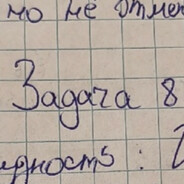 но не отмен
Задача 8
дность: